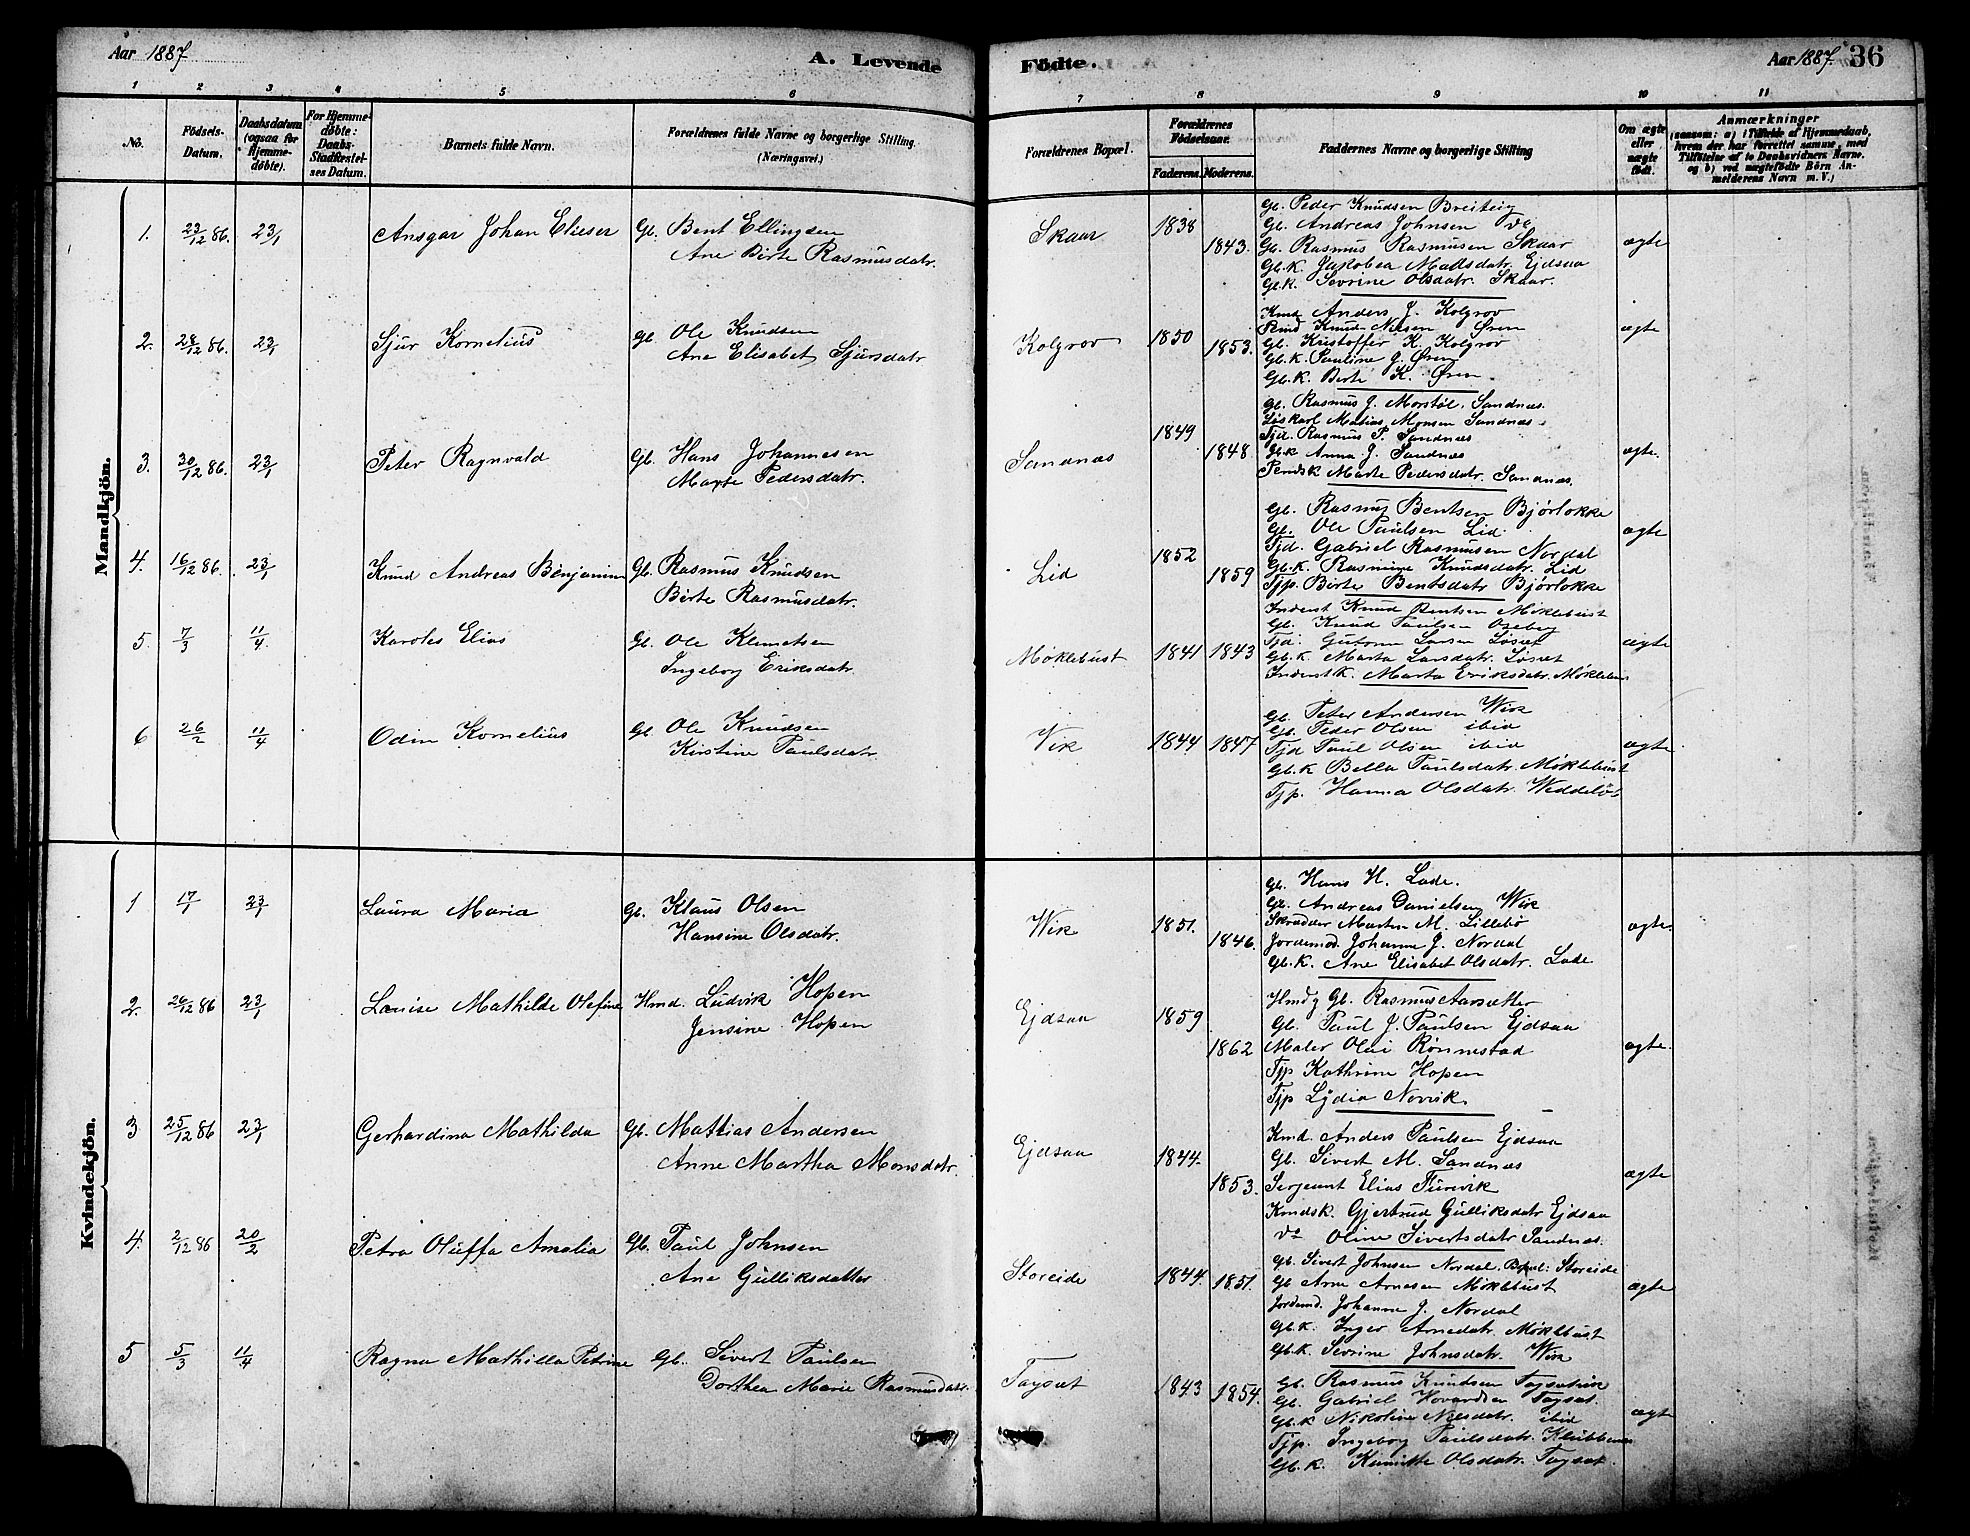 Aar 1887
A. Levende Födte.
Aar 1887. 36
1 2 3 4 5 6 7 8 9 10 11
No.
Födsels-Datum.
Daabsdatum (ogsaa for Hjemmedöbte).
For Hjemmedöbte: Daabs-Stadfæstelses Datum.
Barnets fulde Navn.
Forældrenes fulde Navne og borgerlige Stilling. (Næringsvei.)
Forældrenes Bopæl.
Forældrenes Födselsaar.
Faderens. Moderens.
Faddernes Navne og borgerlige Stilling
Om ægte eller uægte födt.
Anmærkninger
(saasom: a) i Tilfælde af Hjemmedaab, hvem der har forrettet samme, med Tilföielse af to Daabsvidners Navne, og b) ved uægtefödte Börn Anmelderens Navn m. V.)
Mandkjön.
1. 23/12 86. 23/1 Ansgar Johan Elieser Gb. Bent Ellingsen
Ane Birte Rasmusdatr.
Skaar 1838 1843.
Gb. Peder Knudsen Breiteig
Gb. Andreas Johnsen do
Gb. Rasmus Rasmusen Skaar
Gb.K. Jakobea Madsdatr. Ejdsaa
Gb.K. Sevrine Olsdatr. Skaar.
ægte
2. 28/12 86. 23/1 Sjur Kornelius Gb. Ole Knudsen
Ane Elisabet Sjursdatr
Kolgrov 1850 1853.
Kmd Anders J. Kolgrov
Knud Nilsen Øren
Gb. Kristoffer K. Kolgrov
Gb.K. Pauline J. Øren
Gb.K. Berte K. Øren
ægte
3. 30/12 86. 23/1 Peter Ragnvald Gb. Hans Johannesen
Marte Pedersdatr.
Sandnæs 1849 1848
Gb. Rasmus J. Morstøl. Sandnæs.
Løskarl Matias Monsen Sandnæs.
Tjd. Rasmus P. Sandnæs
Gb.K Anna J. Sandnæs
Marte Pedersdatr. Sandnæs.
ægte.
4. 16/12 86. 23/1 Knud Andreas Benjamin Gb. Rasmus Knudsen
Birte Rasmusdatr.
Lid 1852 1859
Gb. Rasmus Bentsen Bjørlokke
Gb. Ole Paulsen Lid
Tjd. Gabriel Rasmusen Nordal
Gb.K. Rasmine Knudsdatr. Lid
Tjp. Birte Bentsdatr Bjørlokke
ægte
5. 7/3 11/4. Karoles Elias Gb. Ole Klemetsen
Ingeborg Eriksdatr
Møklebust 1841 1843
Inderst Knud Bentsen Møklebust
Gb. Knud Paulsen Oseberg
Tjd. Guttorm Larsen Løset
Gb.K. Marta Larsdatr. Løset
Inderst K. Marta Eriksdatr. Møklebus
ægte
6 26/2 11/4 Odin Kornelius Gb Ole Knudsen
Kirstine Paulsdatr
Vik 1844 1847
Gb. Peter Andersen Wik
Gb. Peder Olsen ibid
Tjd Paul Olsen ibid
Gb.K Bella Paulsdatr. Møklebust
Tjp. Hanna Olsdatr. Weddeløs
ægte
Kvindekjön.
1 17/1 23/1 Laura Maria Gb. Klaus Olsen
Hansine Olsdatr.
Wik 1851. 1846.
Gb. Hans H. Lade.
Gb. Andreas Danielsen Wik
Skrædder Marten M. Lillebø
Jordemd. Johanne J. Nordal
Gb.K. Ane Elisabet Olsdatr. Lade
ægte.
2. 26/12 86 23/1 Louise Mathilde Olefine Hmd. Ludvik Hopen
Jensine Hopen
Ejdsaa 1859 1862
Hmd g Gb. Rasmus Aarsætter
Gb. Paul J. Paulsen Ejdsaa
Maler Olai Rönnestad
Tjp Kathrine Hopen
Tjp Lydia Norvik
ægte.
3 25/12 86 23/1 Gerhardina Mathilda Gb. Mathias Andersen
Anne Martha Monsdatr.
Ejdsaa 1844. 1853.
Kmd. Anders Paulsen Ejdsaa
Gb. Sivert M. Sandnæs
Sergeant Elias Furevik
Kmdsk. Gjertrud Gulliksdatr Ejdsaa
do Oline Sivertsdatr Sandnæs.
ægte
4. 2/12 86 20/2 Petra Oluffa Amalia Gb. Paul Johnsen
Ane Gulliksdatter
Storeide 1844. 1851.
Gb. Sivert Johnsen Nordal, Bopæl: Storeide
Gb Arne Arnesen Møklebust
Jordemd. Johanne J. Nordal
Gb.K. Inger Arnedatr. Møklebust
Gb.K. Sevrine Johnsdatr. Wik
ægte
5 5/3 11/4 Ragna Mathilla Petrine Gb. Sivert Paulsen
Dorthea Marie Rasmusdatr.
Tagsæt 1843 1854.
Gb. Rasmus Knudsen Tagsætvik
Gb. Gabriel Hovardsen Tagsæt.
Gb.K Nikoline Nilsdatr. ibid
Tjp. Ingeborg Paulsdatr. Klubben
Gb.K. Olsdatr. Tagsæt.
ægte